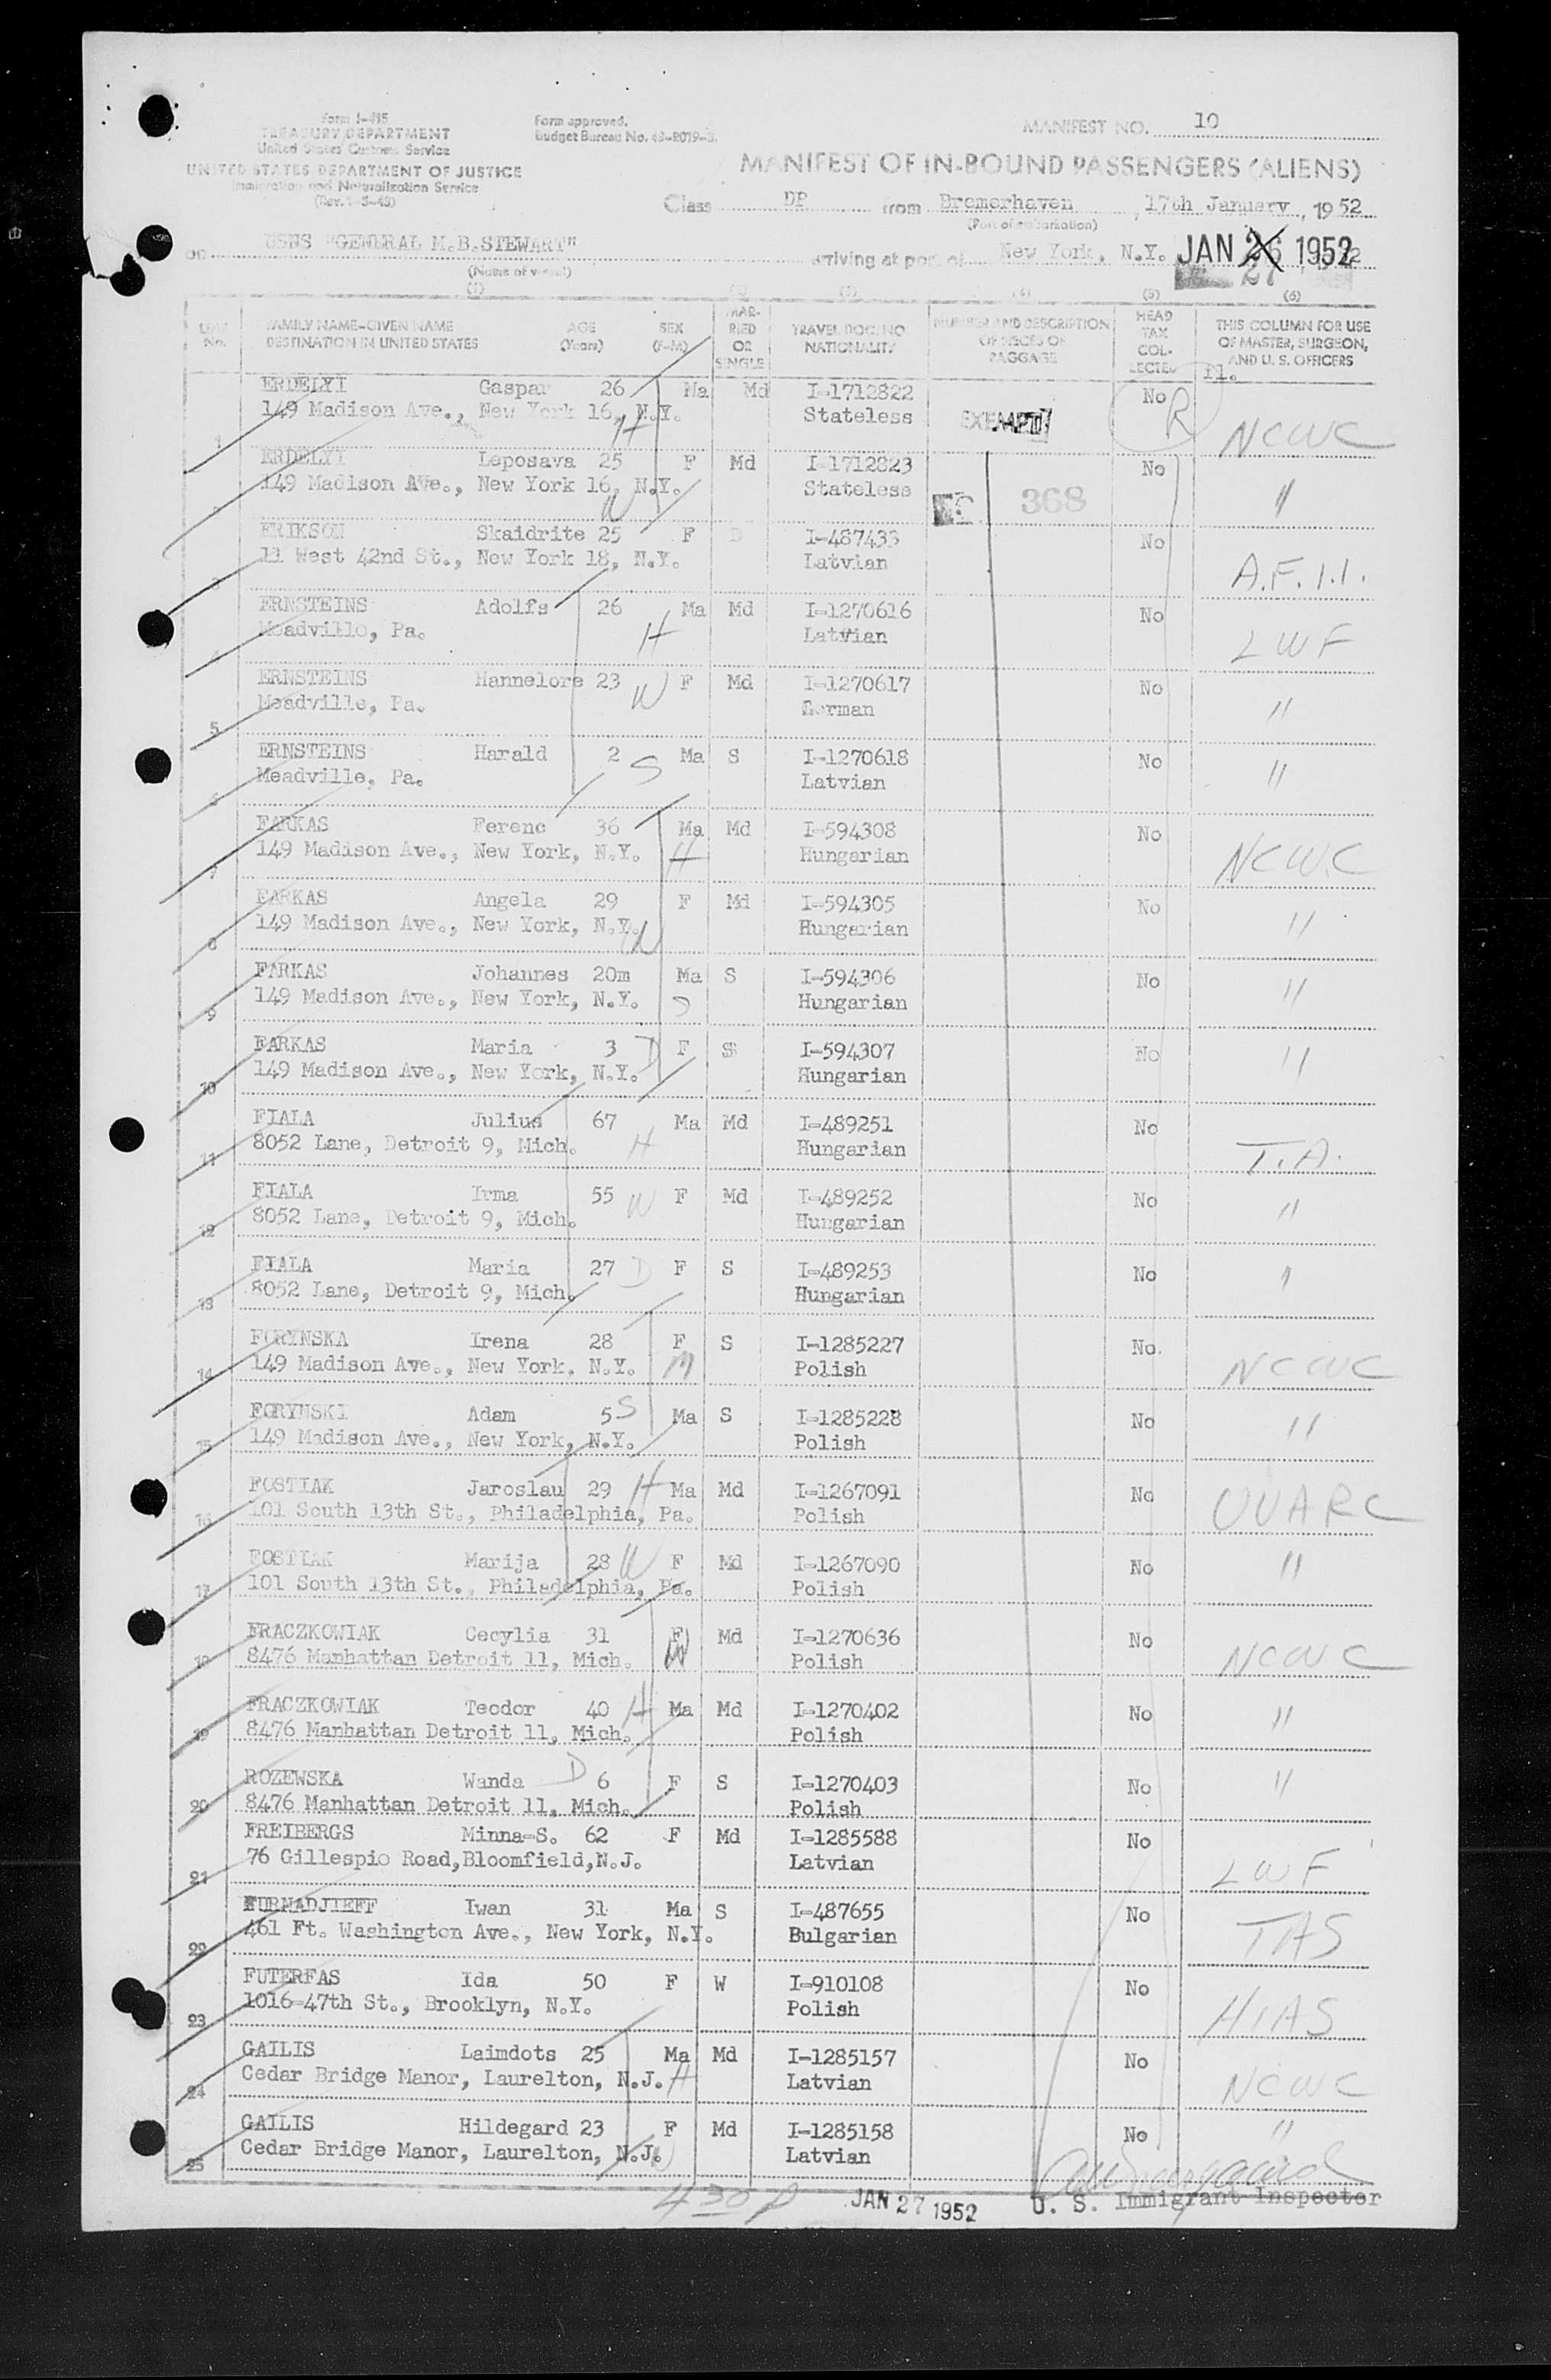 Form I-415
TREASURY DEPARTMENT
United States Customs Service
UNITED STATES DEPARTMENT OF JUSTICE
Immigration and Naturalization Service
(Rev. 1-5-43)
Form approved.
Budget Bureau No. 43-R019-3.
MANIFEST NO. 10
MANIFEST OF IN-BOUND PASSENGERS (ALIENS)
Class DP from Bremerhaven, 17th January, 1952
(Port of embarkation)
on USNS "GENERAL M.B.STEWART" arriving at port of New York, N.Y. JAN 26 1952
27
(Name of vessel)
(1) (3) (4) (5) (6)
LINE No. FAMILY NAME-GIVEN NAME DESTINATION IN UNITED STATES AGE (Years) SEX (F-M) MARRIED OR SINGLE TRAVEL DOC. NO. NATIONALITY NUMBER AND DESCRIPTION OF PIECES OF BAGGAGE HEAD TAX COLLECTED THIS COLUMN FOR USE OF MASTER, SURGEON, AND U. S. OFFICERS
ERDELYI Gaspar 26 Ma Md I-1712822 No
149 Madison Ave., New York 16, N.Y. Stateless EXEMPT R
1 H NCWC
ERDELYI Leposava 25 F Md I-1712823 No
149 Madison Ave., New York 16, N.Y. Stateless 368 "
W
ERIKSON Skaidrite 25 F D I-487433 No
11 West 42nd St., New York 18, N.Y. Latvian
3 A.F.I.I.
ERNSTEINS Adolfs 26 Ma Md I-1270616 No
Meadville, Pa. H Latvian
4 LWF
ERNSTEINS Hannelore 23 W F Md I-1270617 No
Meadville, Pa. German "
5
ERNSTEINS Harald 2 S Ma S I-1270618 No
Meadville, Pa. Latvian "
6
FARKAS Ferenc 36 Ma Md I-594308 No
149 Madison Ave., New York, N.Y. H Hungarian NCWC
7
FARKAS Angela 29 F Md I-594305 No
149 Madison Ave., New York, N.Y. W Hungarian "
8
FARKAS Johannes 20m Ma S I-594306 No
149 Madison Ave., New York, N.Y. S Hungarian "
9
FARKAS Maria 3 D F S I-594307 No
149 Madison Ave., New York, N.Y. Hungarian "
10
FIALA Julius 67 Ma Md I-489251 No
8052 Lane, Detroit 9, Mich. H Hungarian T.A.
11
FIALA Irma 55 W F Md I-489252 No
8052 Lane, Detroit 9, Mich. Hungarian "
12
FIALA Maria 27 D F S I-489253 No
8052 Lane, Detroit 9, Mich. Hungarian "
13
FORYNSKA Irena 28 F S I-1285227 No.
149 Madison Ave., New York, N.Y. M Polish NCWC
14
FORYNSKI Adam 5 S Ma S I-1285228 No
149 Madison Ave., New York, N.Y. Polish "
15
FOSTIAK Jaroslau 29 H Ma Md I-1267091 No
101 South 13th St., Philadelphia, Pa. Polish UUARC
16
FOSTIAK Marija 28 W F Md I-1267090 No "
101 South 13th St., Philadelphia, Pa. Polish
17
FRACZKOWIAK Cecylia 31 F Md I-1270636 No
8476 Manhattan Detroit 11, Mich. W Polish NCWC
18
FRACZKOWIAK Teodor 40 H Ma Md I-1270402 No
8476 Manhattan Detroit 11, Mich. Polish "
19
ROZEWSKA Wanda D 6 F S I-1270403 No "
8476 Manhattan Detroit 11, Mich. Polish
20
FREIBERGS Minna-S. 62 F Md I-1285588 No
76 Gillespio Road,Bloomfield,N.J. Latvian
21 LWF
FURNADJIEFF Iwan 31 Ma S I-487655 No
461 Ft. Washington Ave., New York, N.Y. Bulgarian TAS
22
FUTERFAS Ida 50 F W I-910108 No
1016-47th St., Brooklyn, N.Y. Polish HIAS
23
GAILIS Laimdots 25 Ma Md I-1285157 No
Cedar Bridge Manor, Laurelton, N.J. H Latvian NCWC
24
GAILIS Hildegard 23 F Md I-1285158 No "
Cedar Bridge Manor, Laurelton, N.J. W Latvian
25
430 p JAN 27 1952 U. S. Immigrant Inspector